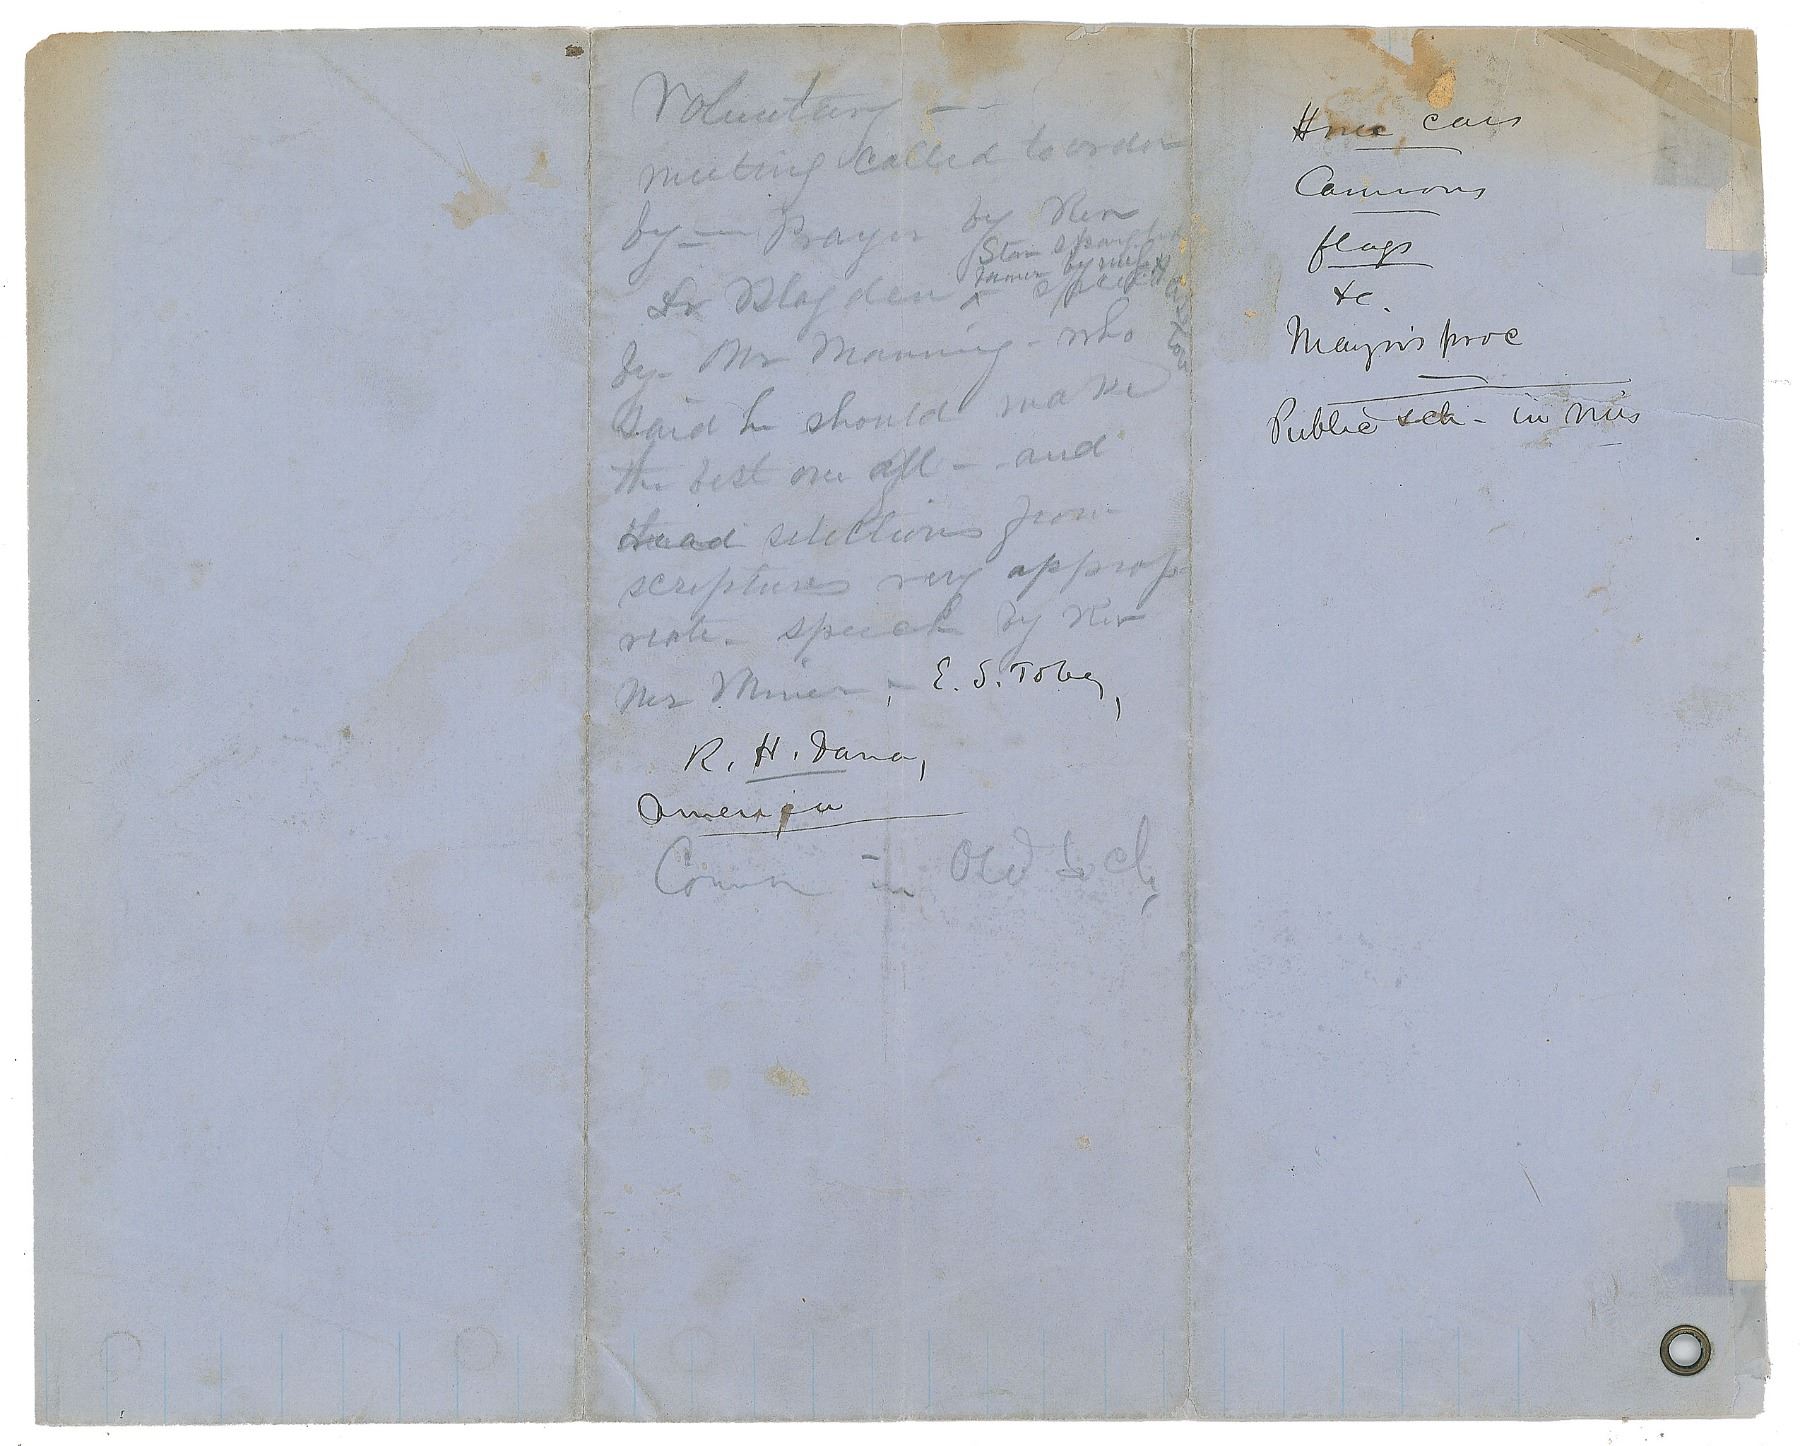 Voluntary —
meeting called to order
by — Prayer by Rev
Star Spangled
banner by
Dr Blagden ^ speech
by - Mr Manning - who
said he should make
the best one of all - and
read selections from
scriptures very approp
riate. speech by Rev
Mr Miner - , E. S. Tobey,
R. H. Dana,
America
Common in Old So Ch,
Horse cars
Cannons
flags
&c.
Mayor's proc
Public sch - in